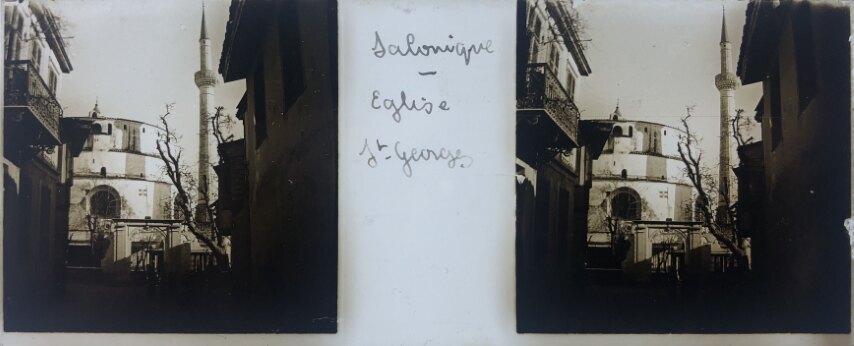 Salonique
—
Eglise
St. Georges